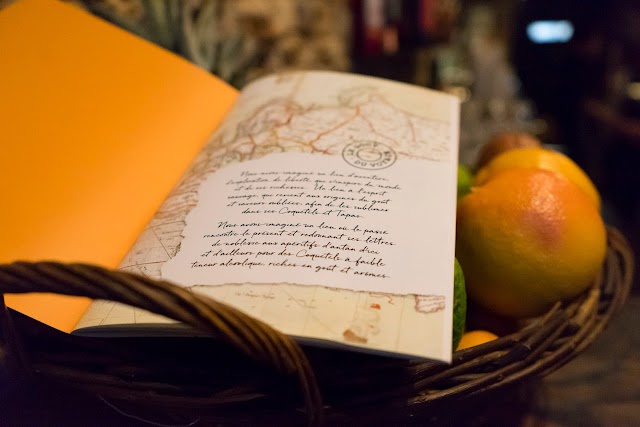 Nous avons imaginé un lieu d'aventure,
d'exploration de liberté, qui s'inspire du monde
et de ses richesses. Un lieu à l'esprit
sauvage, qui revient aux origines du goût
et saveurs oubliées, afin de les sublimer
dans ses Coquetels et Tapas.
Nous avons imaginé un lieu où le passé
rencontre le présent et redonnant ses lettres
de noblesse aux apéritifs d'antan d'ici
et d'ailleurs pour des Coquetels à faible
teneur alcoolique, riches en goût et arômes.